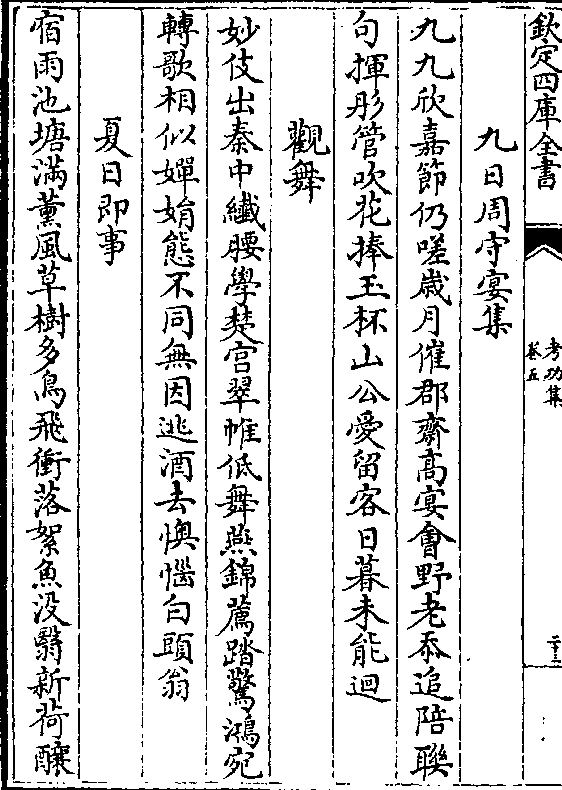 欽定四庫全書
考功集
卷五
二十三
九日周守宴集
九九欣嘉節仍嗟歲月催郡齋髙宴會野老忝追陪聯
句揮彤管吹花捧玉杯山公愛留客日暮未能迴
觀舞
妙伎出秦中纎腰學楚宫翠帷低舞燕錦薦踏驚鴻宛
轉歌相似嬋娟態不同無因逃酒去懊惱白頭翁
夏日即事
宿雨池塘滿薫風草樹多鳥飛衝落絮魚没翳新荷釀